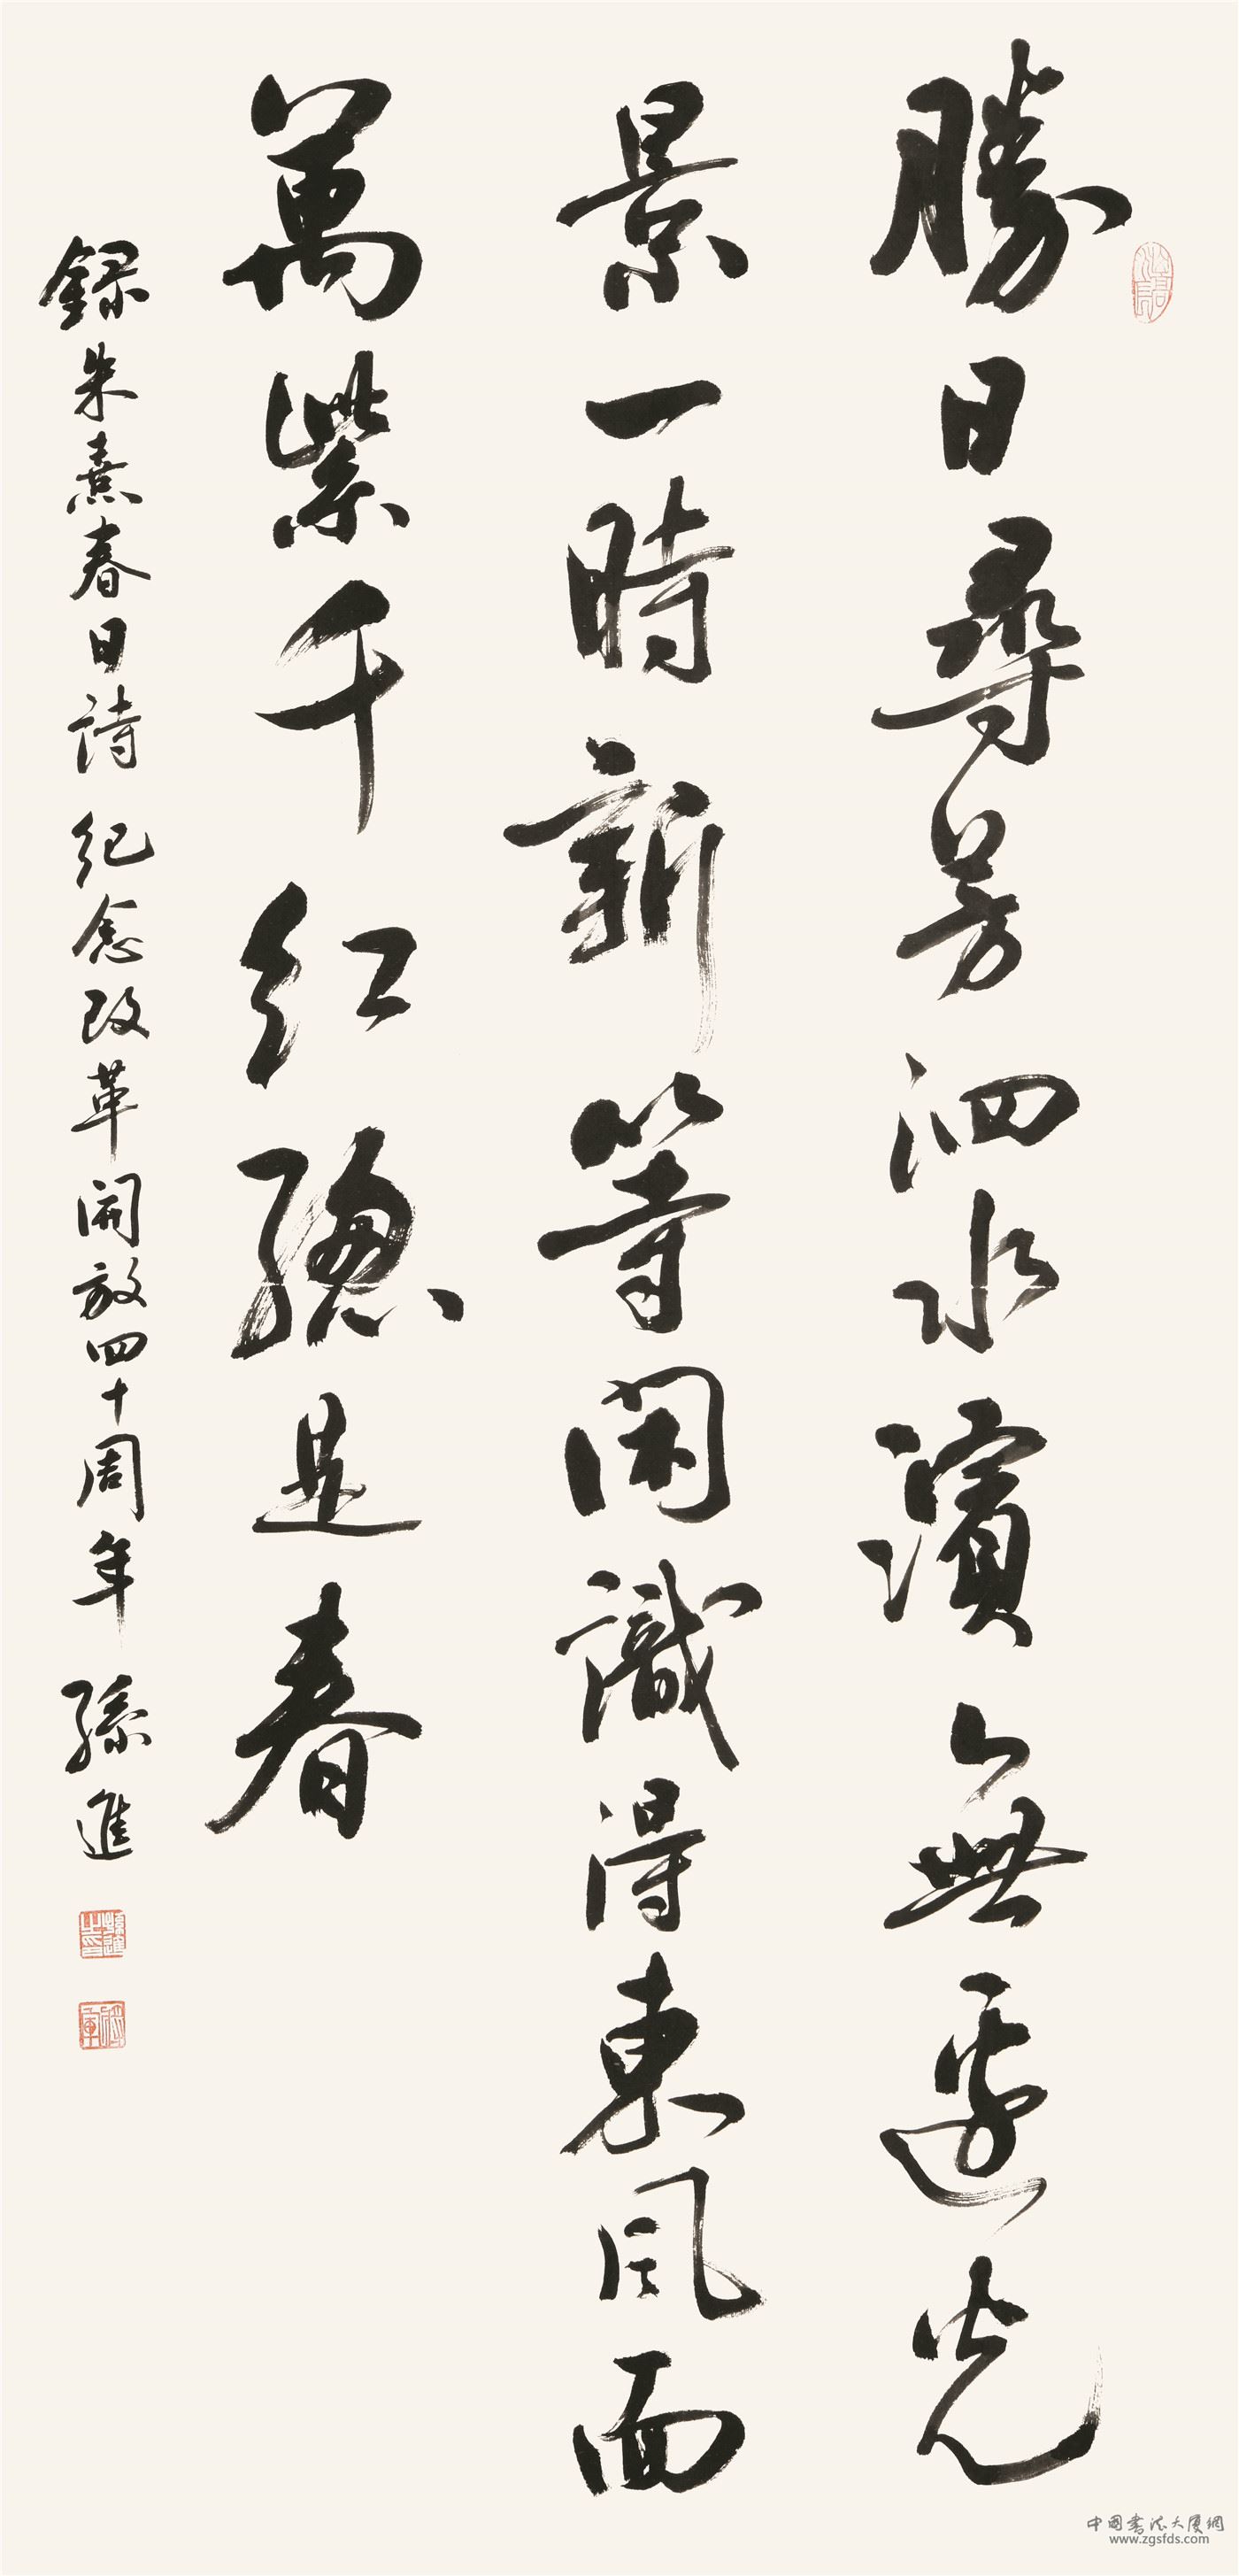 勝日尋芳泗水濱無邊光
景一時新等閑識得東風面
萬紫千紅總是春
録朱熹春日詩 紀念改革開放四十周年 孫進
孫進之印
中国書法大厦網
www.zgsfds.com